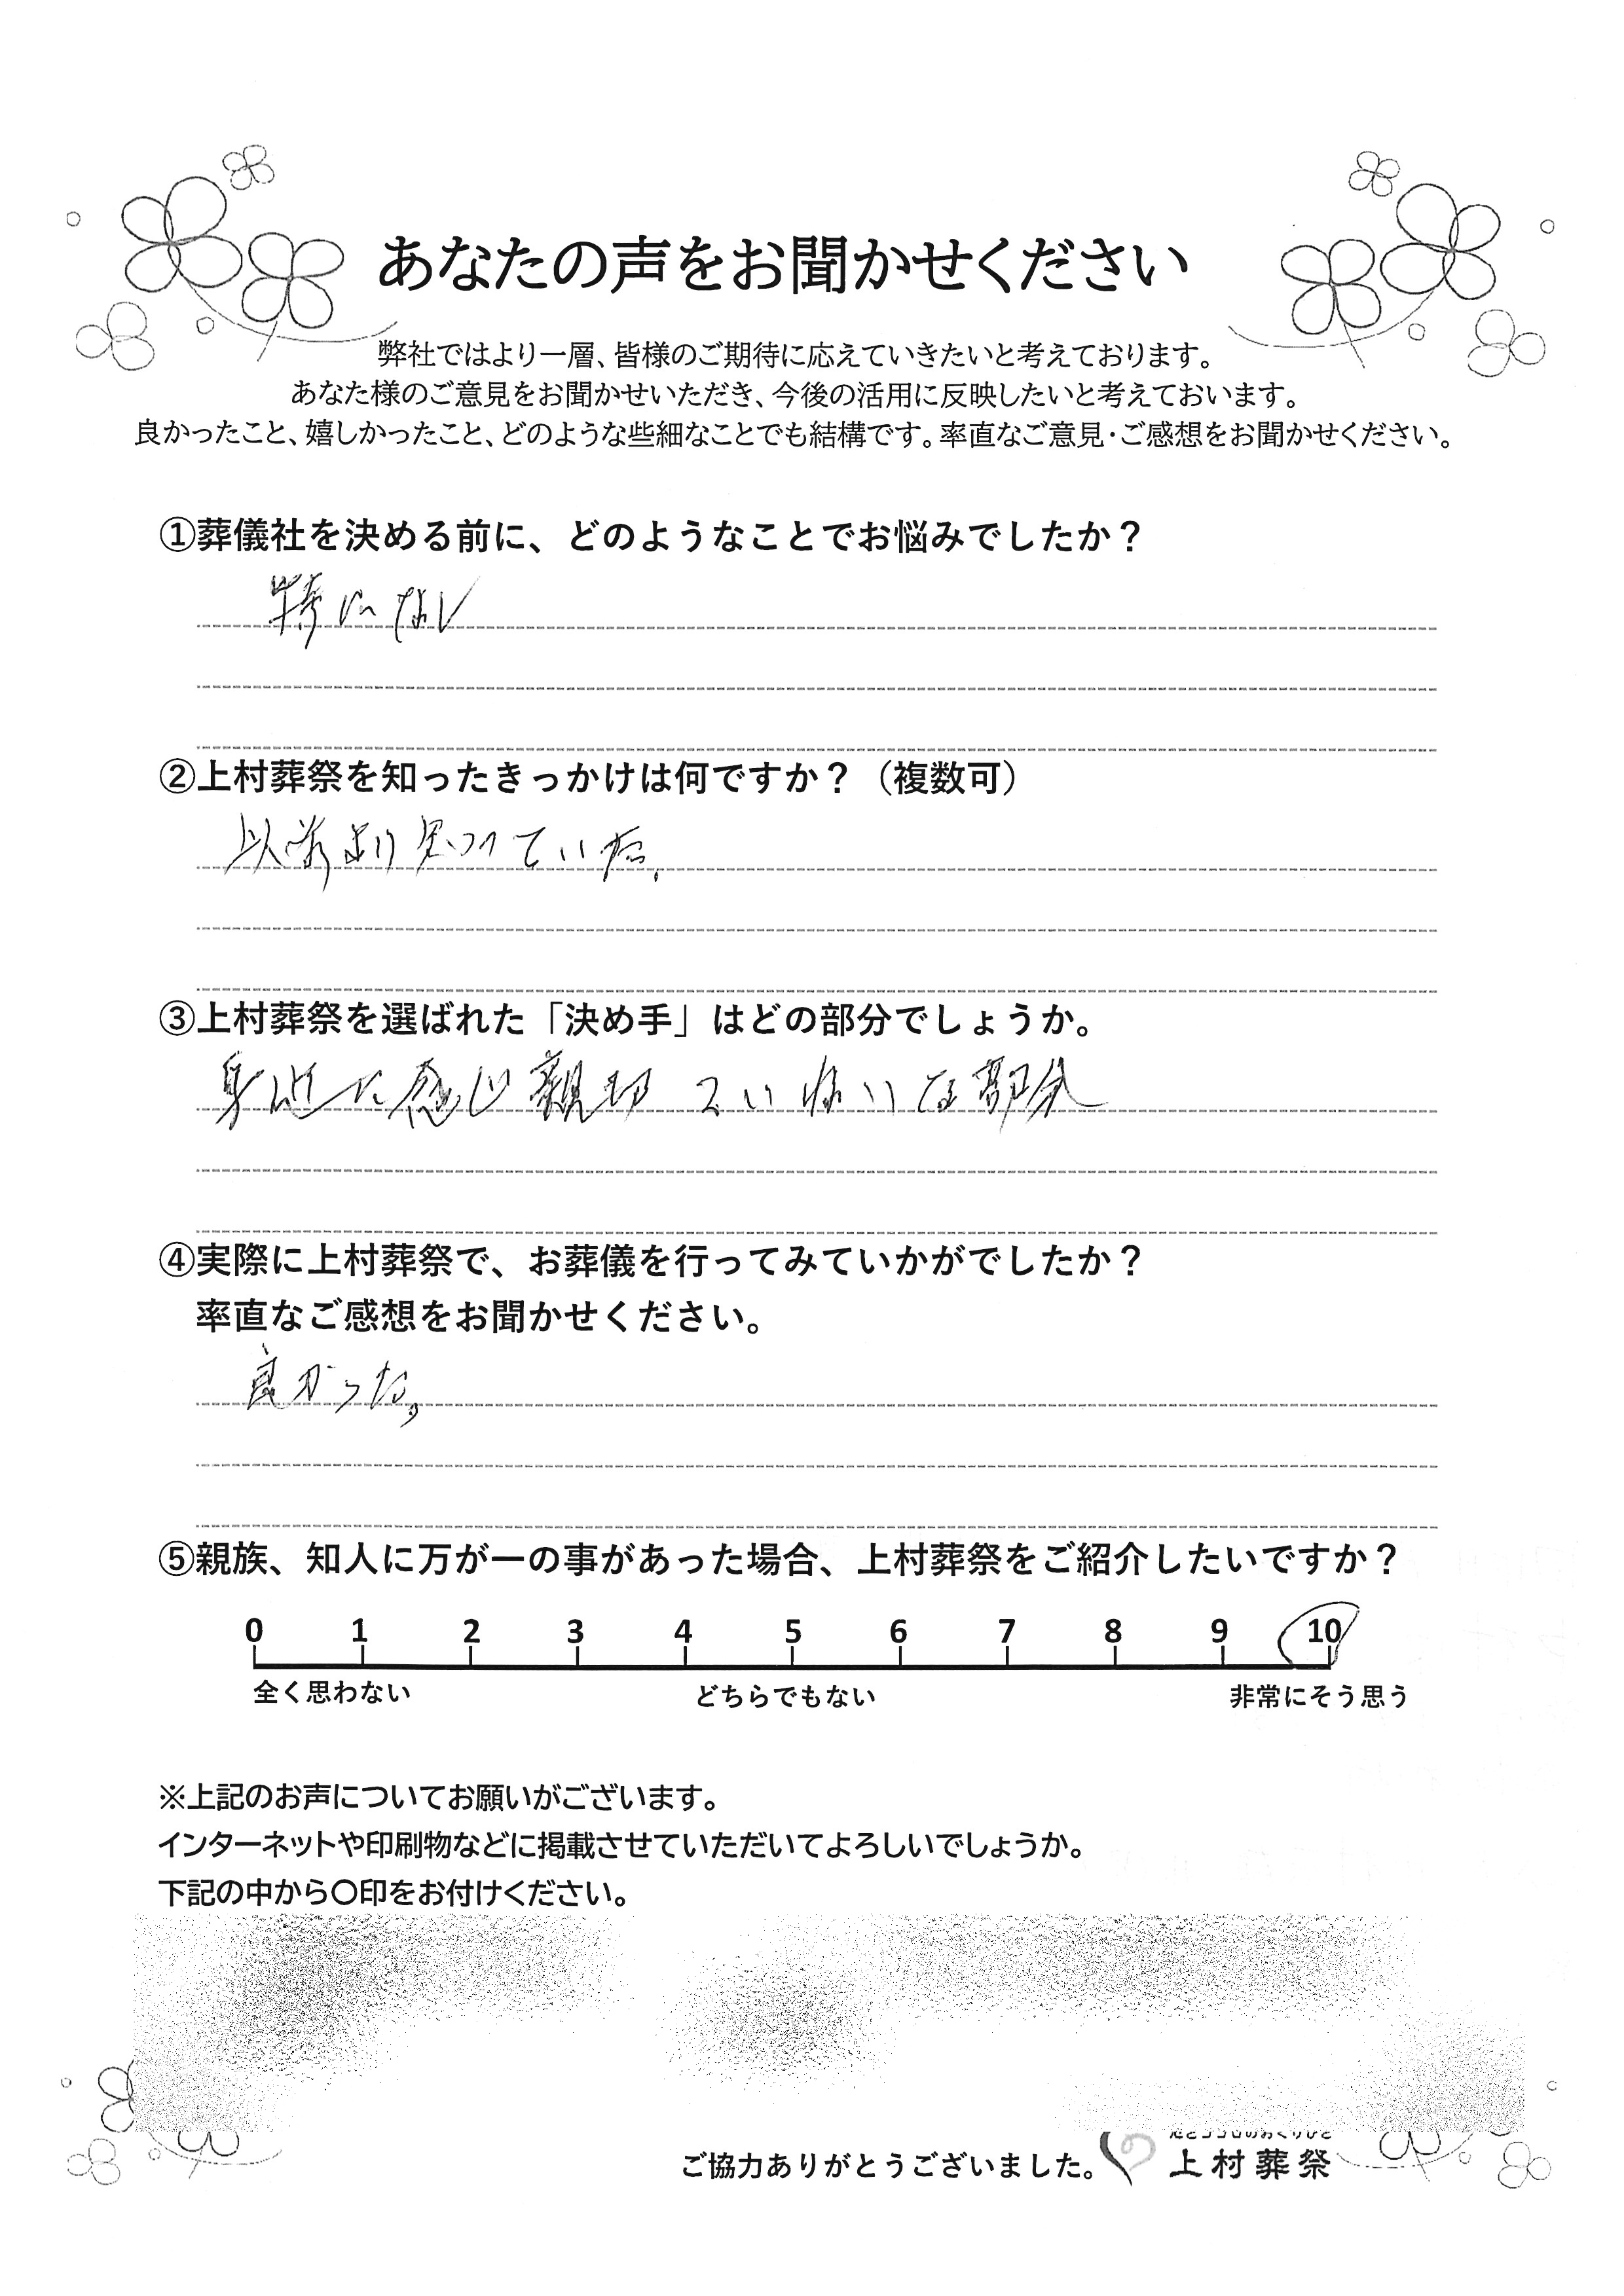 あなたの声をお聞かせください
弊社ではより一層、皆様のご期待に応えていきたいと考えております。
あなた様のご意見をお聞かせいただき、今後の活用に反映したいと考えておいます。
良かったこと、嬉しかったこと、どのような些細なことでも結構です。率直なご意見・ご感想をお聞かせください。
①葬儀社を決める前に、どのようなことでお悩みでしたか？
特になし
②上村葬祭を知ったきっかけは何ですか？（複数可）
以前より知っていた。
③上村葬祭を選ばれた「決め手」はどの部分でしょうか。
身近に感じ親切ていねいな部分
④実際に上村葬祭で、お葬儀を行ってみていかがでしたか？
率直なご感想をお聞かせください。
良かった。
⑤親族、知人に万が一の事があった場合、上村葬祭をご紹介したいですか？
0 1 2 3 4 5 6 7 8 9 10
全く思わない どちらでもない 非常にそう思う
※上記のお声についてお願いがございます。
インターネットや印刷物などに掲載させていただいてよろしいでしょうか。
下記の中から〇印をお付けください。
ご協力ありがとうございました。 上村葬祭